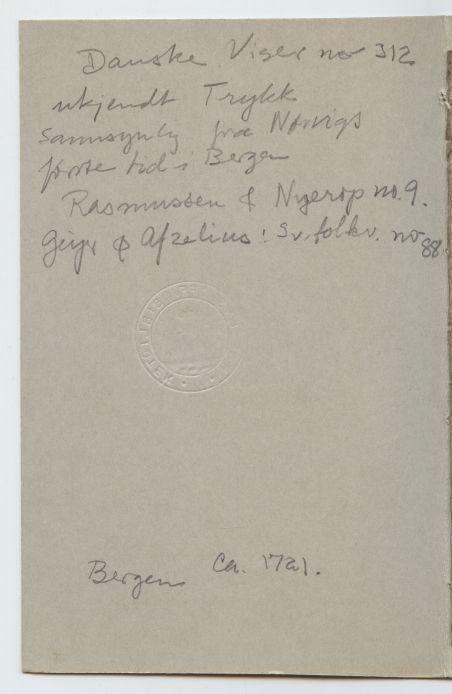 Danske Viser no 312
ukjendt Trykk
sannsynlig fra Nørvigs
første tid i Bergen
Rasmussen & Nyerop no. 9.
Geijer & Afzelius: Sv. folkv. no 88
Bergen Ca. 1721.